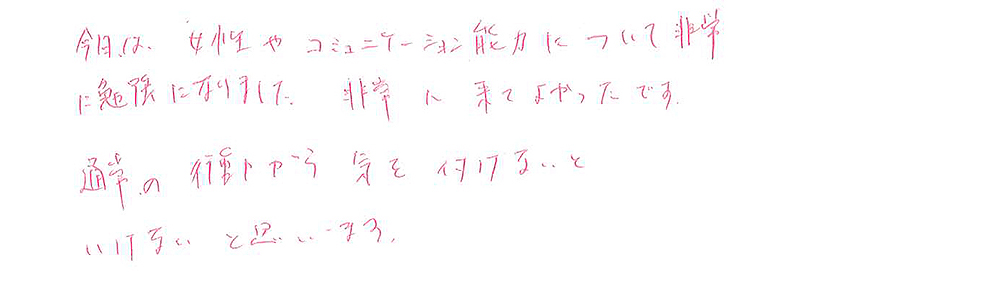 今日は、女性やコミュニケーション能力について非常
に勉強になりました。非常に来てよかったです。
通常の行動から気を付けないと
いけないと思います。